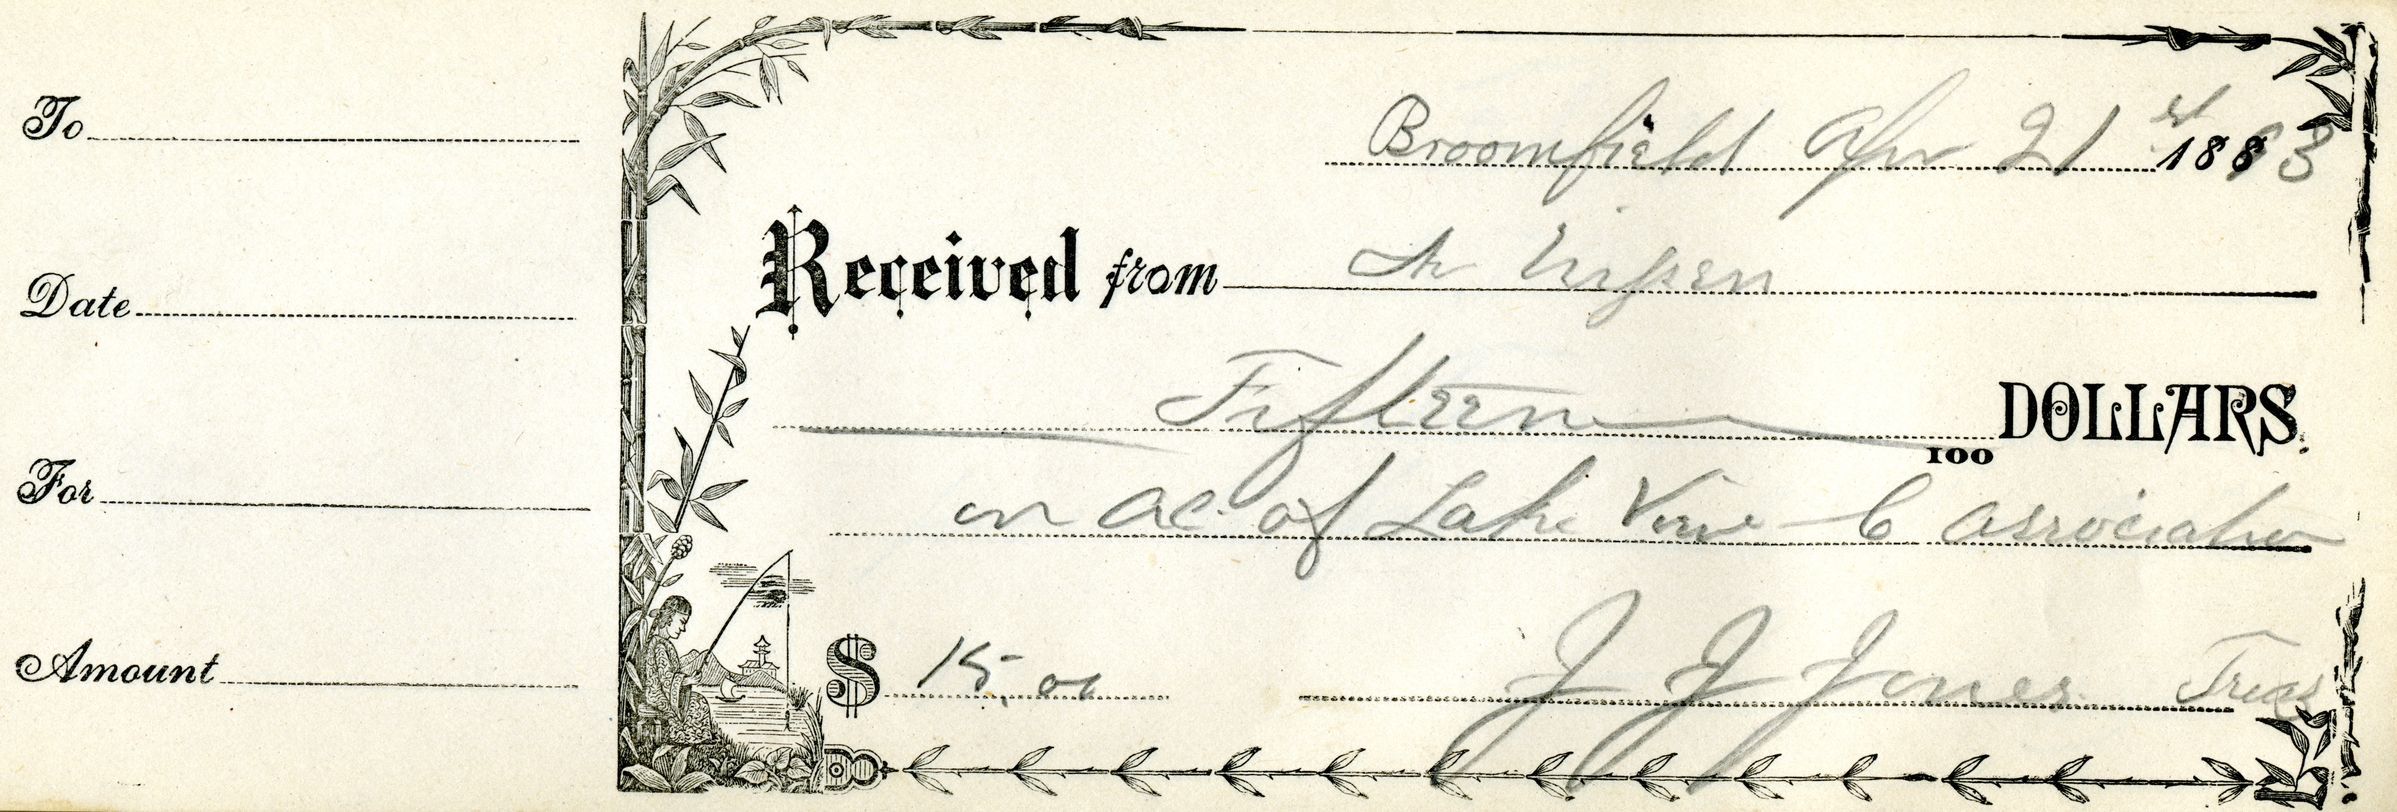 To
Date
For
Amount
Broomfield Apr 21st 1893
Received from
Fifteen 100 DOLLARS.
on ac. of Lake View C Association
$ 15.00 J J Jones Treas